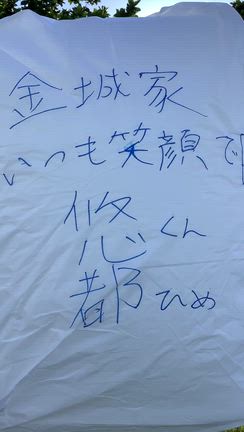 金城家
いつも笑顔で
悠くん
都ひめ